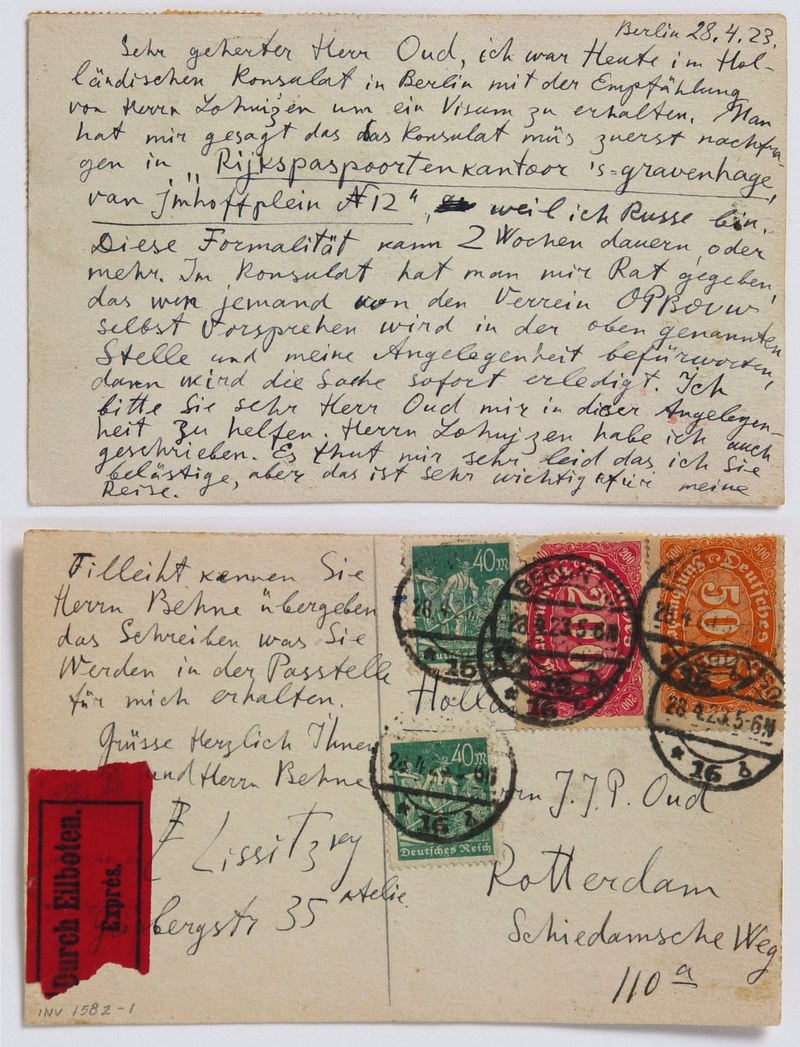 Berlin 28.4.23.
Sehr geherter Herr Oud, ich war Heute im Hol-
ländischen Konsulat in Berlin mit der Empfählung
von Herrn Lohuizen um ein Visum zu erhalten. Man
hat mir gesagt das das Konsulat müs zuerst nachfra-
gen in „Rijkspaspoortenkantoor 's-gravenhage,
van Jmhoffplein N12“, weil ich Russe bin.
Diese Formalität kann 2 Wochen dauern, oder
mehr. Im Konsulat hat man mir Rat gegeben,
das wen jemand von den Verein OPBOUW
selbst Vorsprehen wird in der oben genannten
Stelle und meine Angelegenheit befürworten,
dann wird die Sache sofort erledigt. Ich
bitte Sie sehr Herr Oud mir in dieser Angelegen-
heit zu helfen. Herrn Lohujzen habe ich auch
geschrieben. Es thut mir sehr leid das ich Sie
belästige, aber das ist sehr wichtig für meine
Reise.
Filleiht kennen Sie
Herrn Behne übergeben
das Schreiben was Sie
Werden in der Passtelle
für mich erhalten.
Grüsse Herzlich Ihnen
und Herrn Behne
Lissitzky
Atelie
bergstr 35
Durch Eilboten.
Exprès.
INV 1582-1
40M
200
500
Deutsches
BERLIN
28.4.23.5-6N
* 16 b
28.4.23.5-6N
* 16 b
Holla
40M
Deutsches Reich
* 16 b
rn J.J.P. Oud
Rotterdam
Schiedamsche Weg
110 a